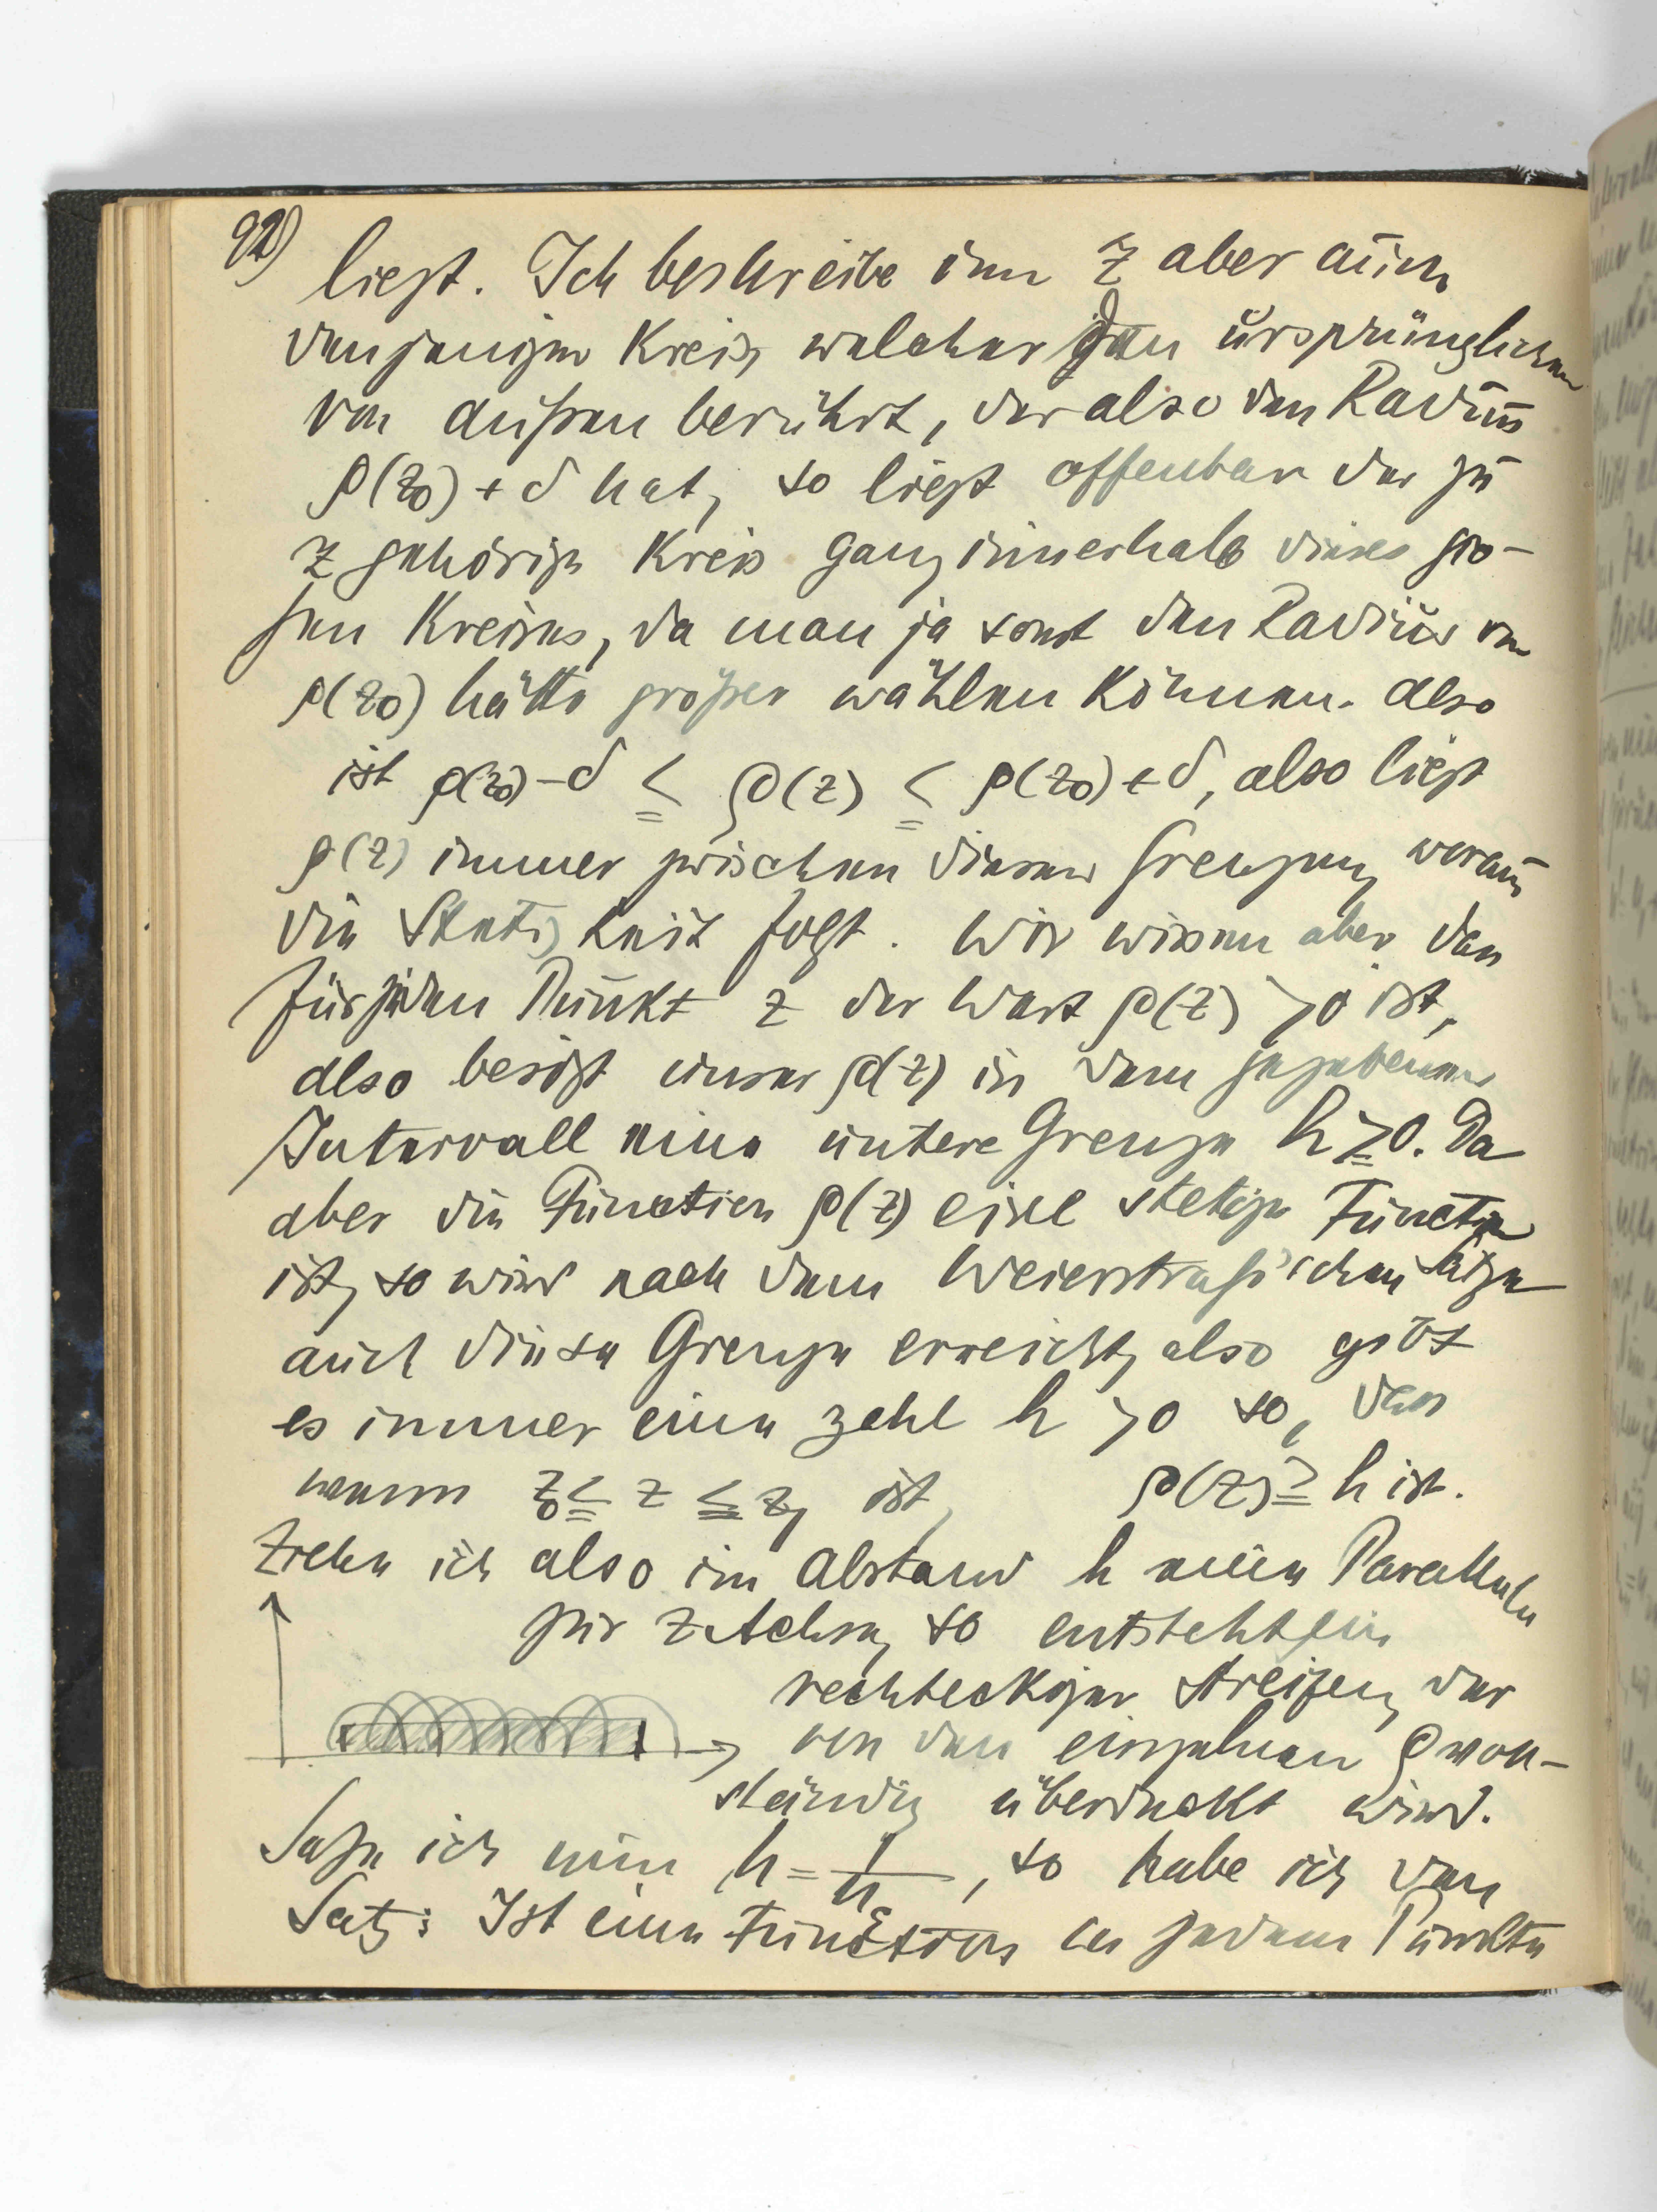 92)
liegt. Ich beschreibe um z aber auch
denjenigen Kreis, welcher den ursprünglichen
von außen berührt, der also den Radius
ρ(z₀) + δ hat, so liegt offenbar der zu
z gehörige Kreis ganz innerhalb dieses gro-
ßen Kreises, da man ja sonst den Radius von
ρ(z₀) hätte größer wählen können. Also
ist ρ(z₀) – δ ≦ ρ(z) ≦ ρ(z₀) + δ, also liegt
ρ(z) immer zwischen diesen Grenzen, woraus
die Stetigkeit folgt. Wir wissen aber dass
für jeden Punkt z der Wert ρ(z) > 0 ist,
also besitzt unser ρ(z) in dem gegebenen
Intervall eine untere Grenze h ≧ 0. Da
aber die Function ρ(z) eine stetige Function
ist, so wird nach dem Weierstraß'schen Satze
auch diese Grenze erreicht, also gibt
es immer eine Zahl h > 0 so, dass
wenn z₀ ≦ z ≦ z₁ ist, ρ(z) ≧ h ist.
Ziehe ich also im Abstand h eine Parallele
zur z-Achse, so entsteht ein
rechteckiger Streifen, der
von den einzelnen ρ voll-
ständig überdeckt wird.
Setze ich nun h = 1/n, so habe ich den
Satz: Ist eine Function in jedem Punkte